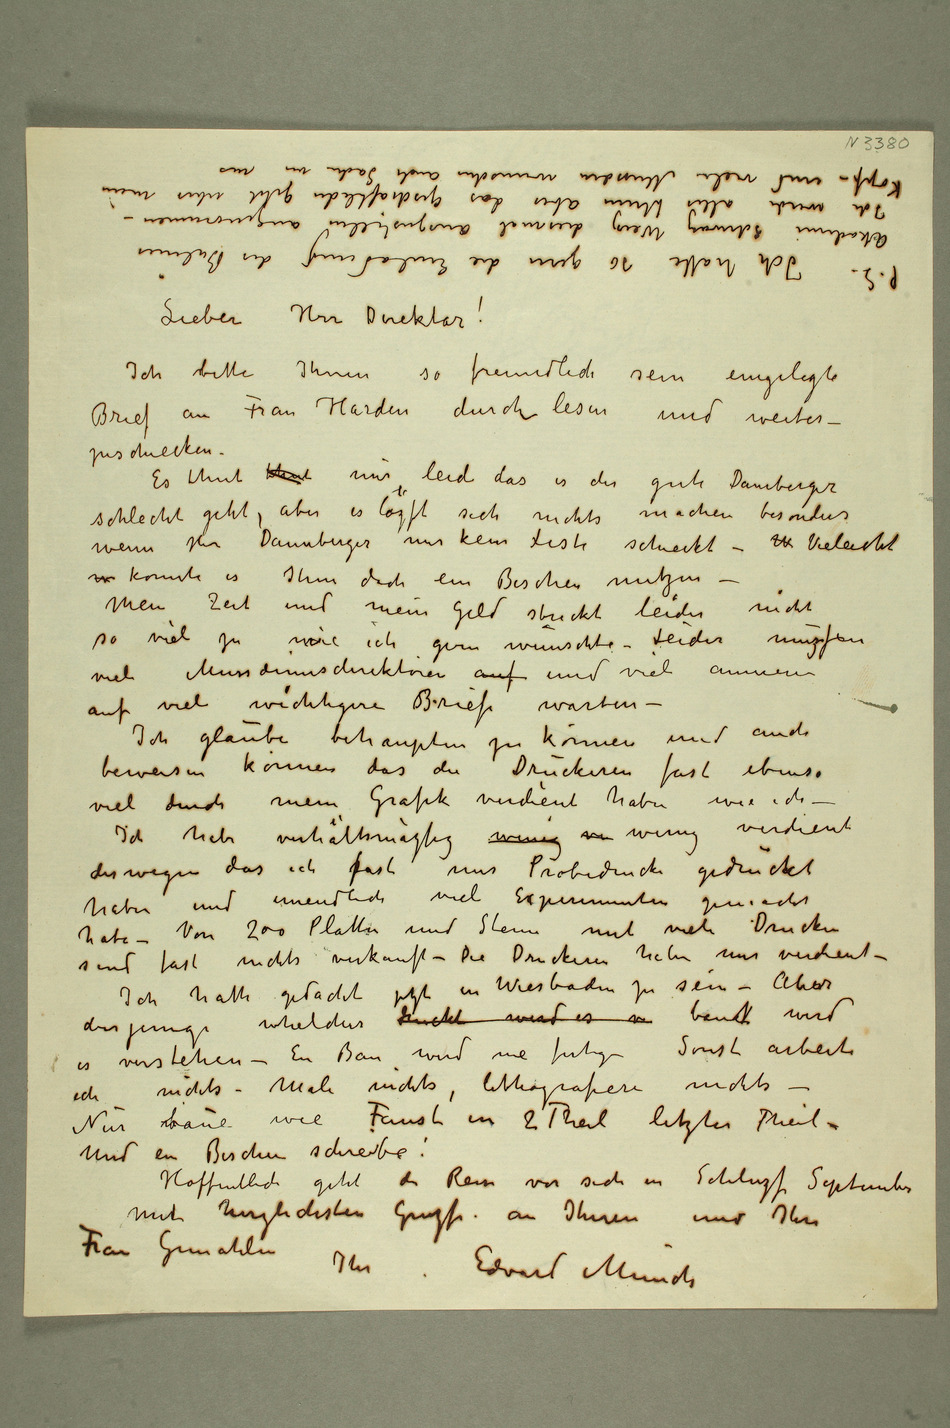 N 3380
P.S. Ich hatte so gern die Einladung der Berliner
Akademi Schwarz Weiz diesmal auszustellen angenommen –
Ich werde alles thun aber das geschaftliche geht uber mein
Kopf – und viele Museden wunschen auch Sache um
Lieber Herr Direktor!
Ich bitte Ihnen so freundlich sein eingelegte
Brief an Frau Harden durch lesen und weiter–
zuschiecken.
Es thut thut mir leid das es der gute Danneberger
schlecht geht, aber es läszt sich nichts machen besonders
wenn Herr Danneberger mir kein Liste schieckt – Vieleicht
konnte es Ihm doch ein Bischen nutzen –
Mein Zeit und mein Geld strickt leider nicht
so viel zu wie ich gern wünschte – Leider müszen
viele Musæumsdirektören auf und viel annen
auf viel wichtigere Briefe warten –
Ich glaube behaupten zu können und auch
beweisen können das die Druckeren fast ebenso
viel durch meine Grafik verdient haben wie ich –
Ich habe verhältnismäszig wenig wenig verdient
deswegen das ich fast nur Probedrucke gedruckt
haben und unendlich viel Experimenten gemacht
habe – Von 200 Platten und Steine mit viele Drucken
sind fast nichts verkauft – Die Druckeren haben nur verdient –
Ich hatte gedacht jetzt in Wiesbaden zu sein – Aber
derjenige whelcher druckt wird es baut wird
es verstehen – Ein Bau wird nie fertig – Sonst arbeite
ich nichts – Male nichts, lithografiere nichts –
Nur baue wie Faust in 2 Theil letzter Theil –
Und ein Bischen schreibe!
Hoffentlich geht die Reise vor sich in Schlusz September
Mit herzlichsten Grusze an Ihnen und Ihre
Frau Gemahlin
Ihr Edvard Munch